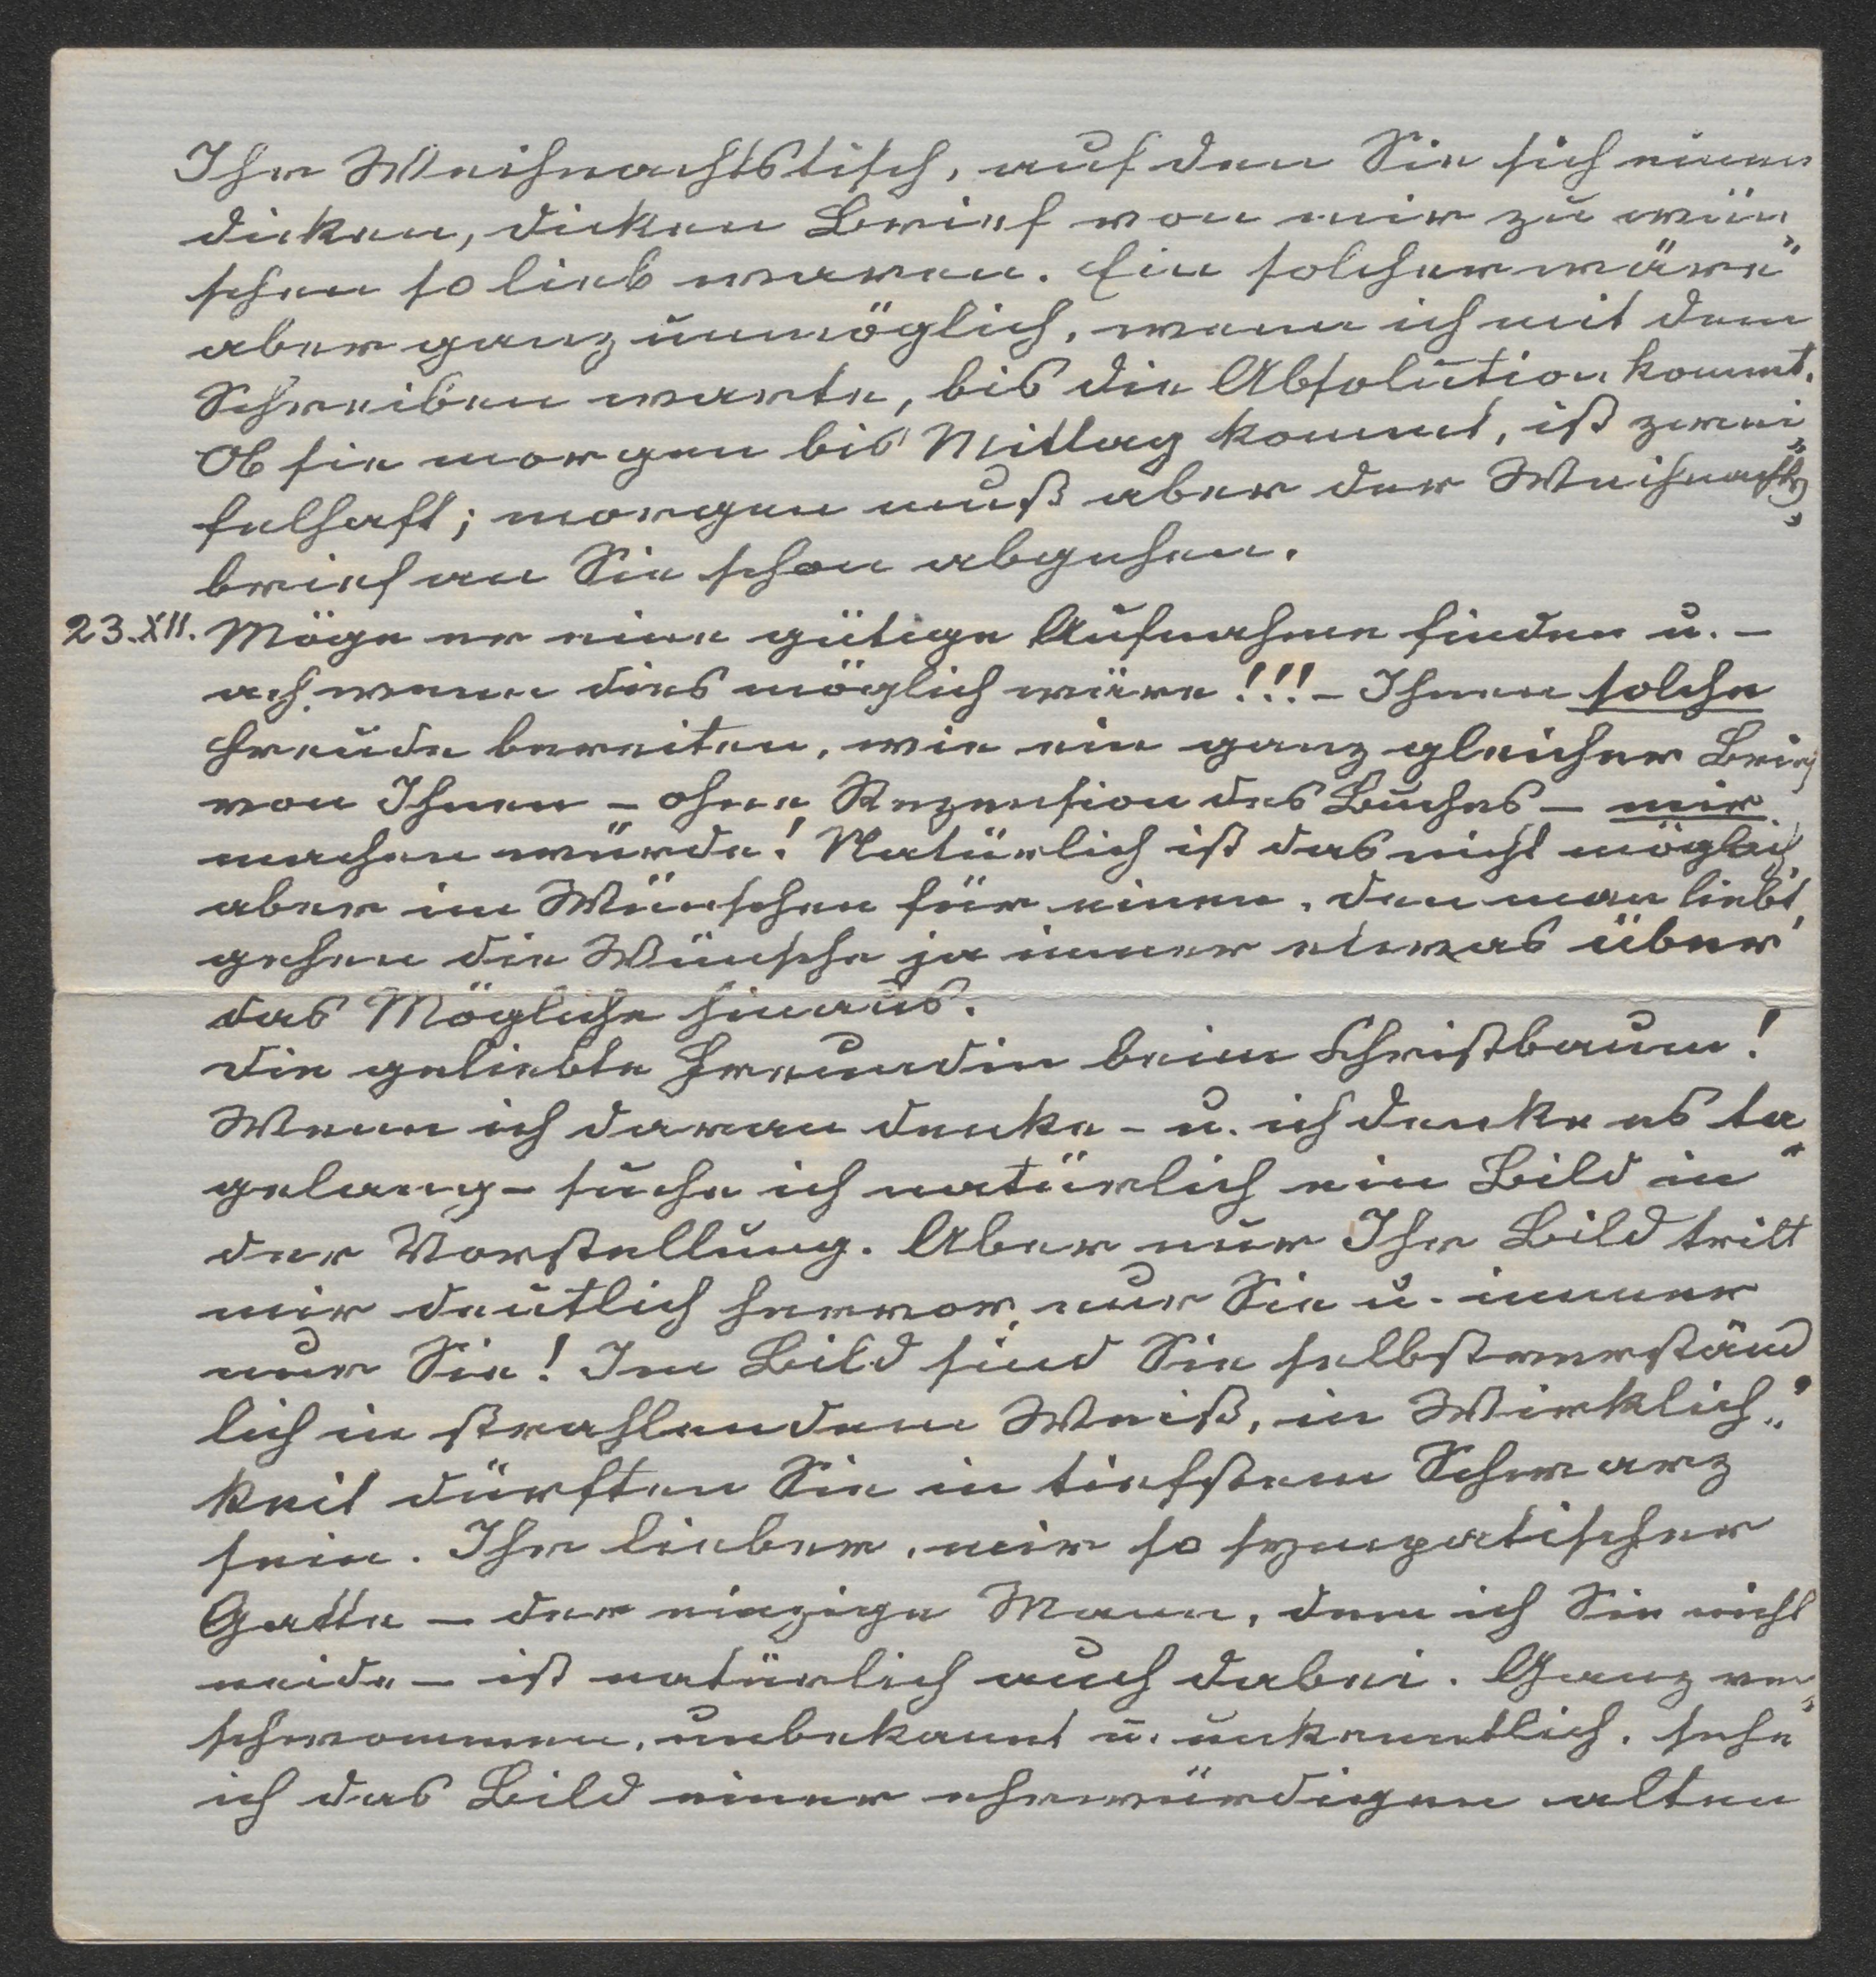 Ihr Weihnachtstisch, auf den Sie sich einen
dicken, dicken Brief von mir zu wün„
schen so lieb waren. Ein solcher wäre
aber ganz unmöglich, wenn ich mit dem
Schreiben warte, bis die Absolution kommt.
Ob sie morgen bis Mittag kommt, ist zwei„
felhaft; morgen muß aber der Weihnachts„
brief an Sie schon abgehen.
23.XII. Möge er eine gütige Aufnahme finden u. –
ach, wenn dies möglich wäre!!! – Ihnen solche
Freude bereiten, wie ein ganz gleicher Brief
von Ihnen – ohne Rezension des Buches – mir
machen würde! Natürlich ist das nicht möglich,
aber im Wünschen für einen, den man liebt,
gehen die Wünsche ja immer etwas über
das Mögliche hinaus.
Die geliebte Freundin beim Christbaum!
Wenn ich daran denke – u. ich denke es ta„
gelang – suche ich natürlich ein Bild in
der Vorstellung. Aber nur Ihr Bild tritt
mir deutlich hervor, nur Sie u. immer
nur Sie! Im Bild sind Sie selbstverständ„
lich in strahlendem Weiß, in Wirklich„
keit dürften Sie in tiefstem Schwarz
sein. Ihr lieber, mir so sympatischer
Gatte – der einzige Mann, dem ich Sie nicht
neide – ist natürlich auch dabei. Ganz ver„
schwommen, unbekannt u. unkenntlich, sehe
ich das Bild einer ehrwürdigen alten